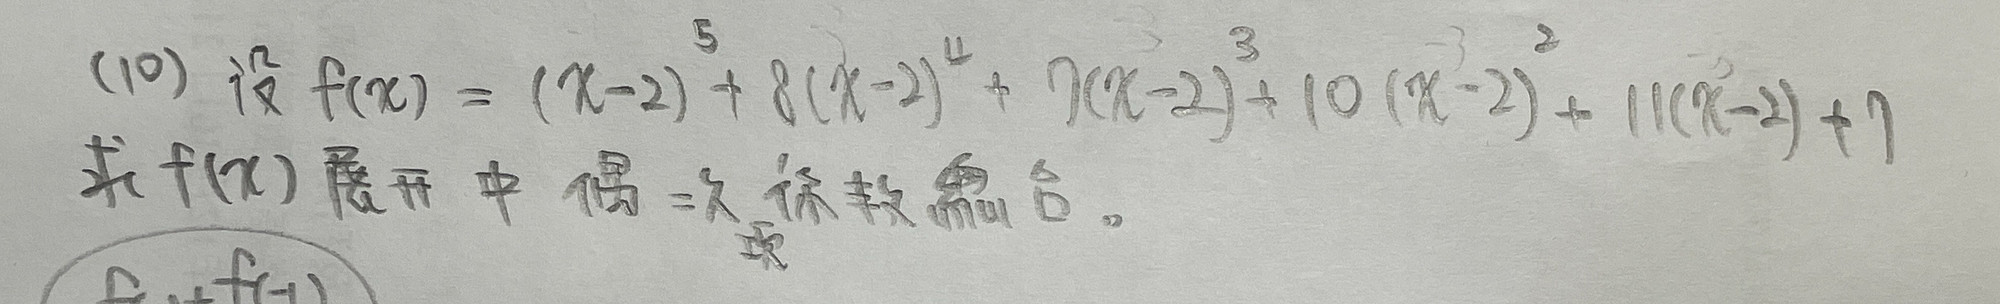 (10) 设 f(x) = (x-2)⁵ + 8(x-2)⁴ + 7(x-2)³ + 10(x-2)² + 11(x-2) + 7
求 f(x) 展开中偶次项系数总合。
f(-1)